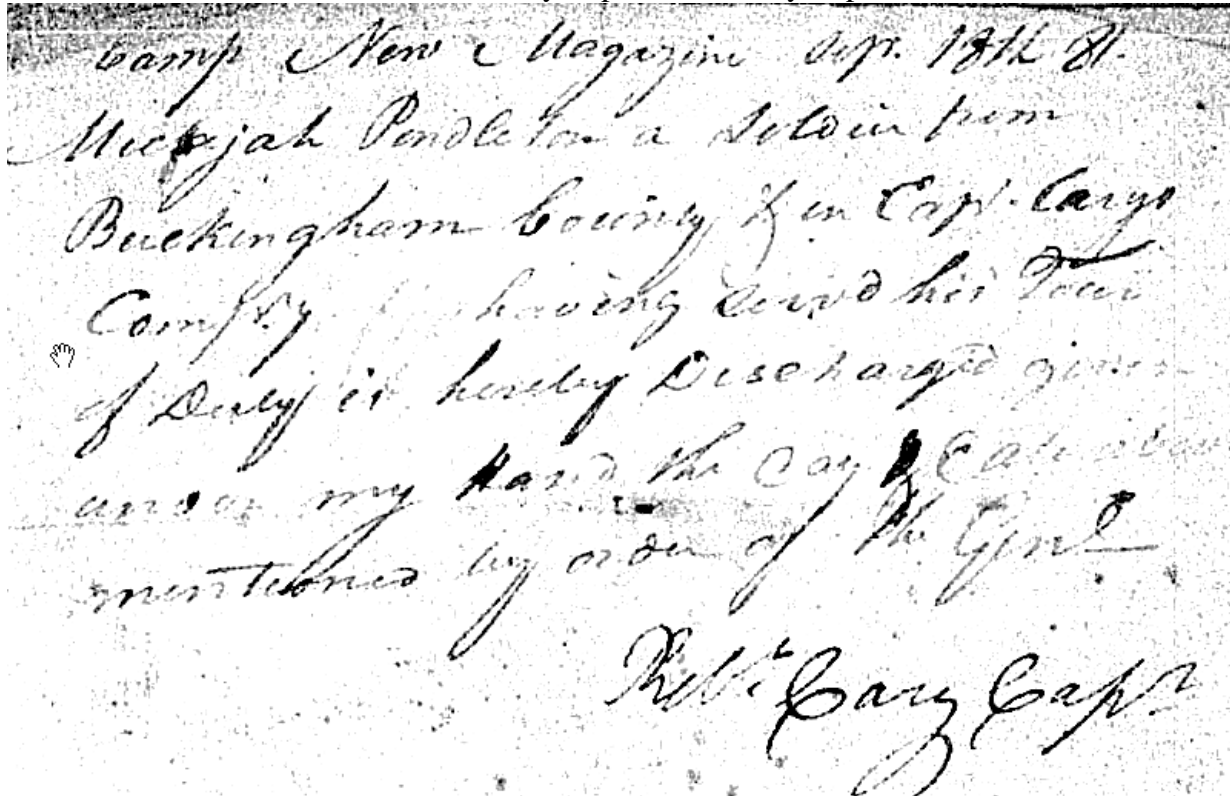 Camp New Magazine Sep. 18th 81.
Mickjah Pendleton a Soldier from
Buckingham County & in Capt. Carys
Compy having servd his Tour
of Duty is hereby Discharg'd given
under my Hand the day & Date above
mentioned by order of the Genl
Robt. Cary Capt